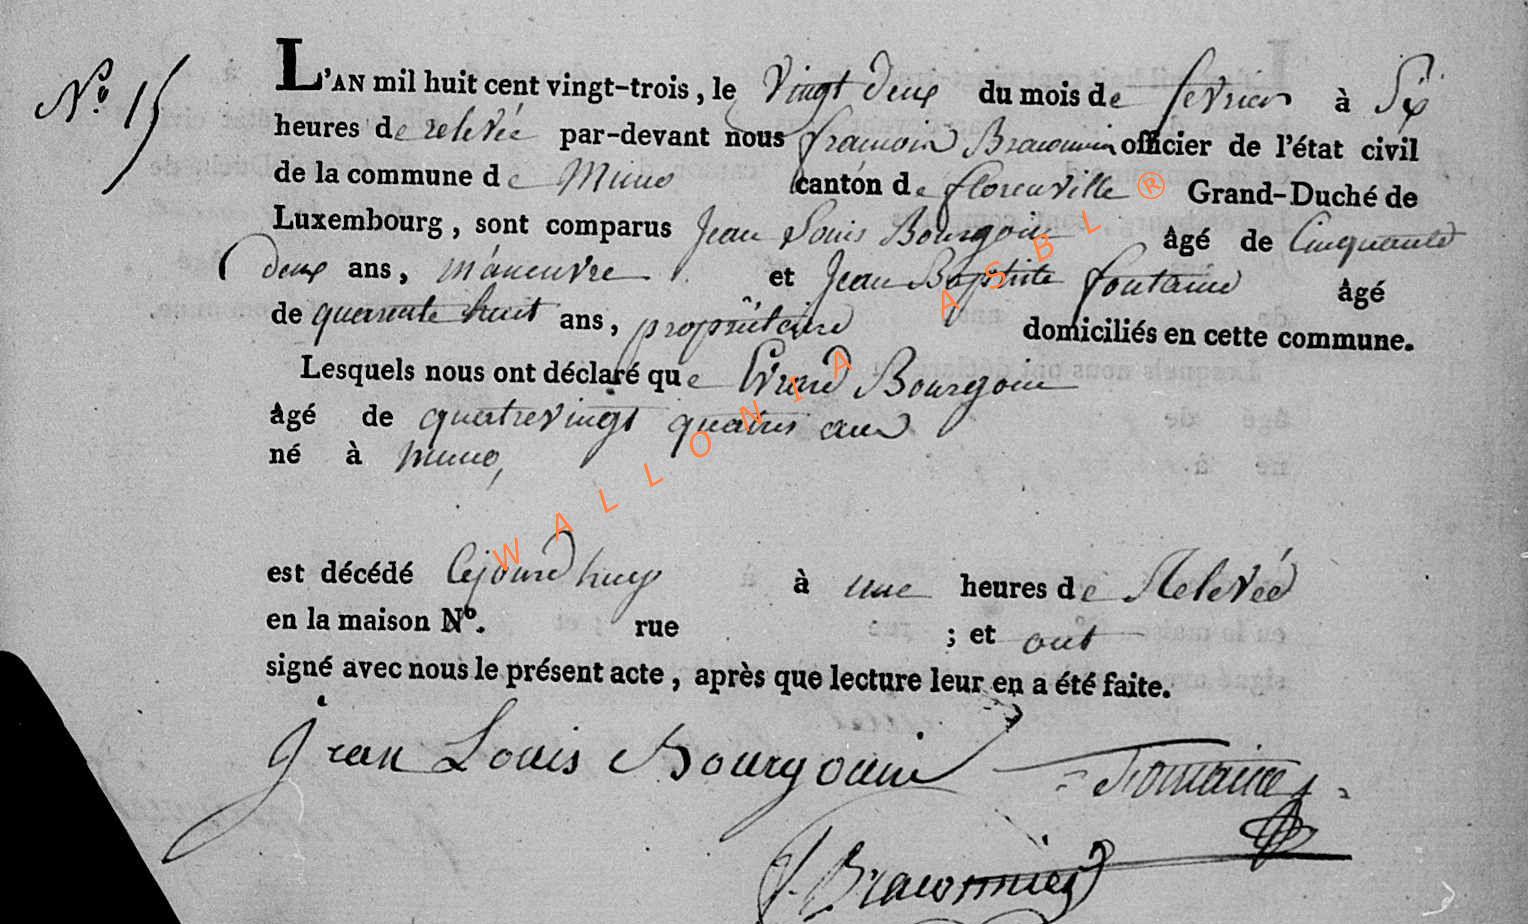 N.º 15
L'AN mil huit cent vingt-trois, le vingt deux du mois de fevrier à Six
heures de relevée par-devant nous francois Braconnier officier de l'état civil
de la commune de Muno canton de florenville Grand-Duché de
Luxembourg, sont comparus Jean Louis Bourgoin âgé de Cinquante
deux ans, manœuvre et Jean Baptiste fontaine âgé
de quarante huit ans, propriétaire domiciliés en cette commune.
Lesquels nous ont déclaré que Evrard Bourgoin
âgé de quatrevingt quatres ans
né à muno,
est décédé Cejourdhuy à une heures de Relevée
en la maison Nº. rue ; et ont
signé avec nous le présent acte, après que lecture leur en a été faite.
Jean Louis Bourgouin fontaine
f. Braconnier
WALLONIA ASBL ®